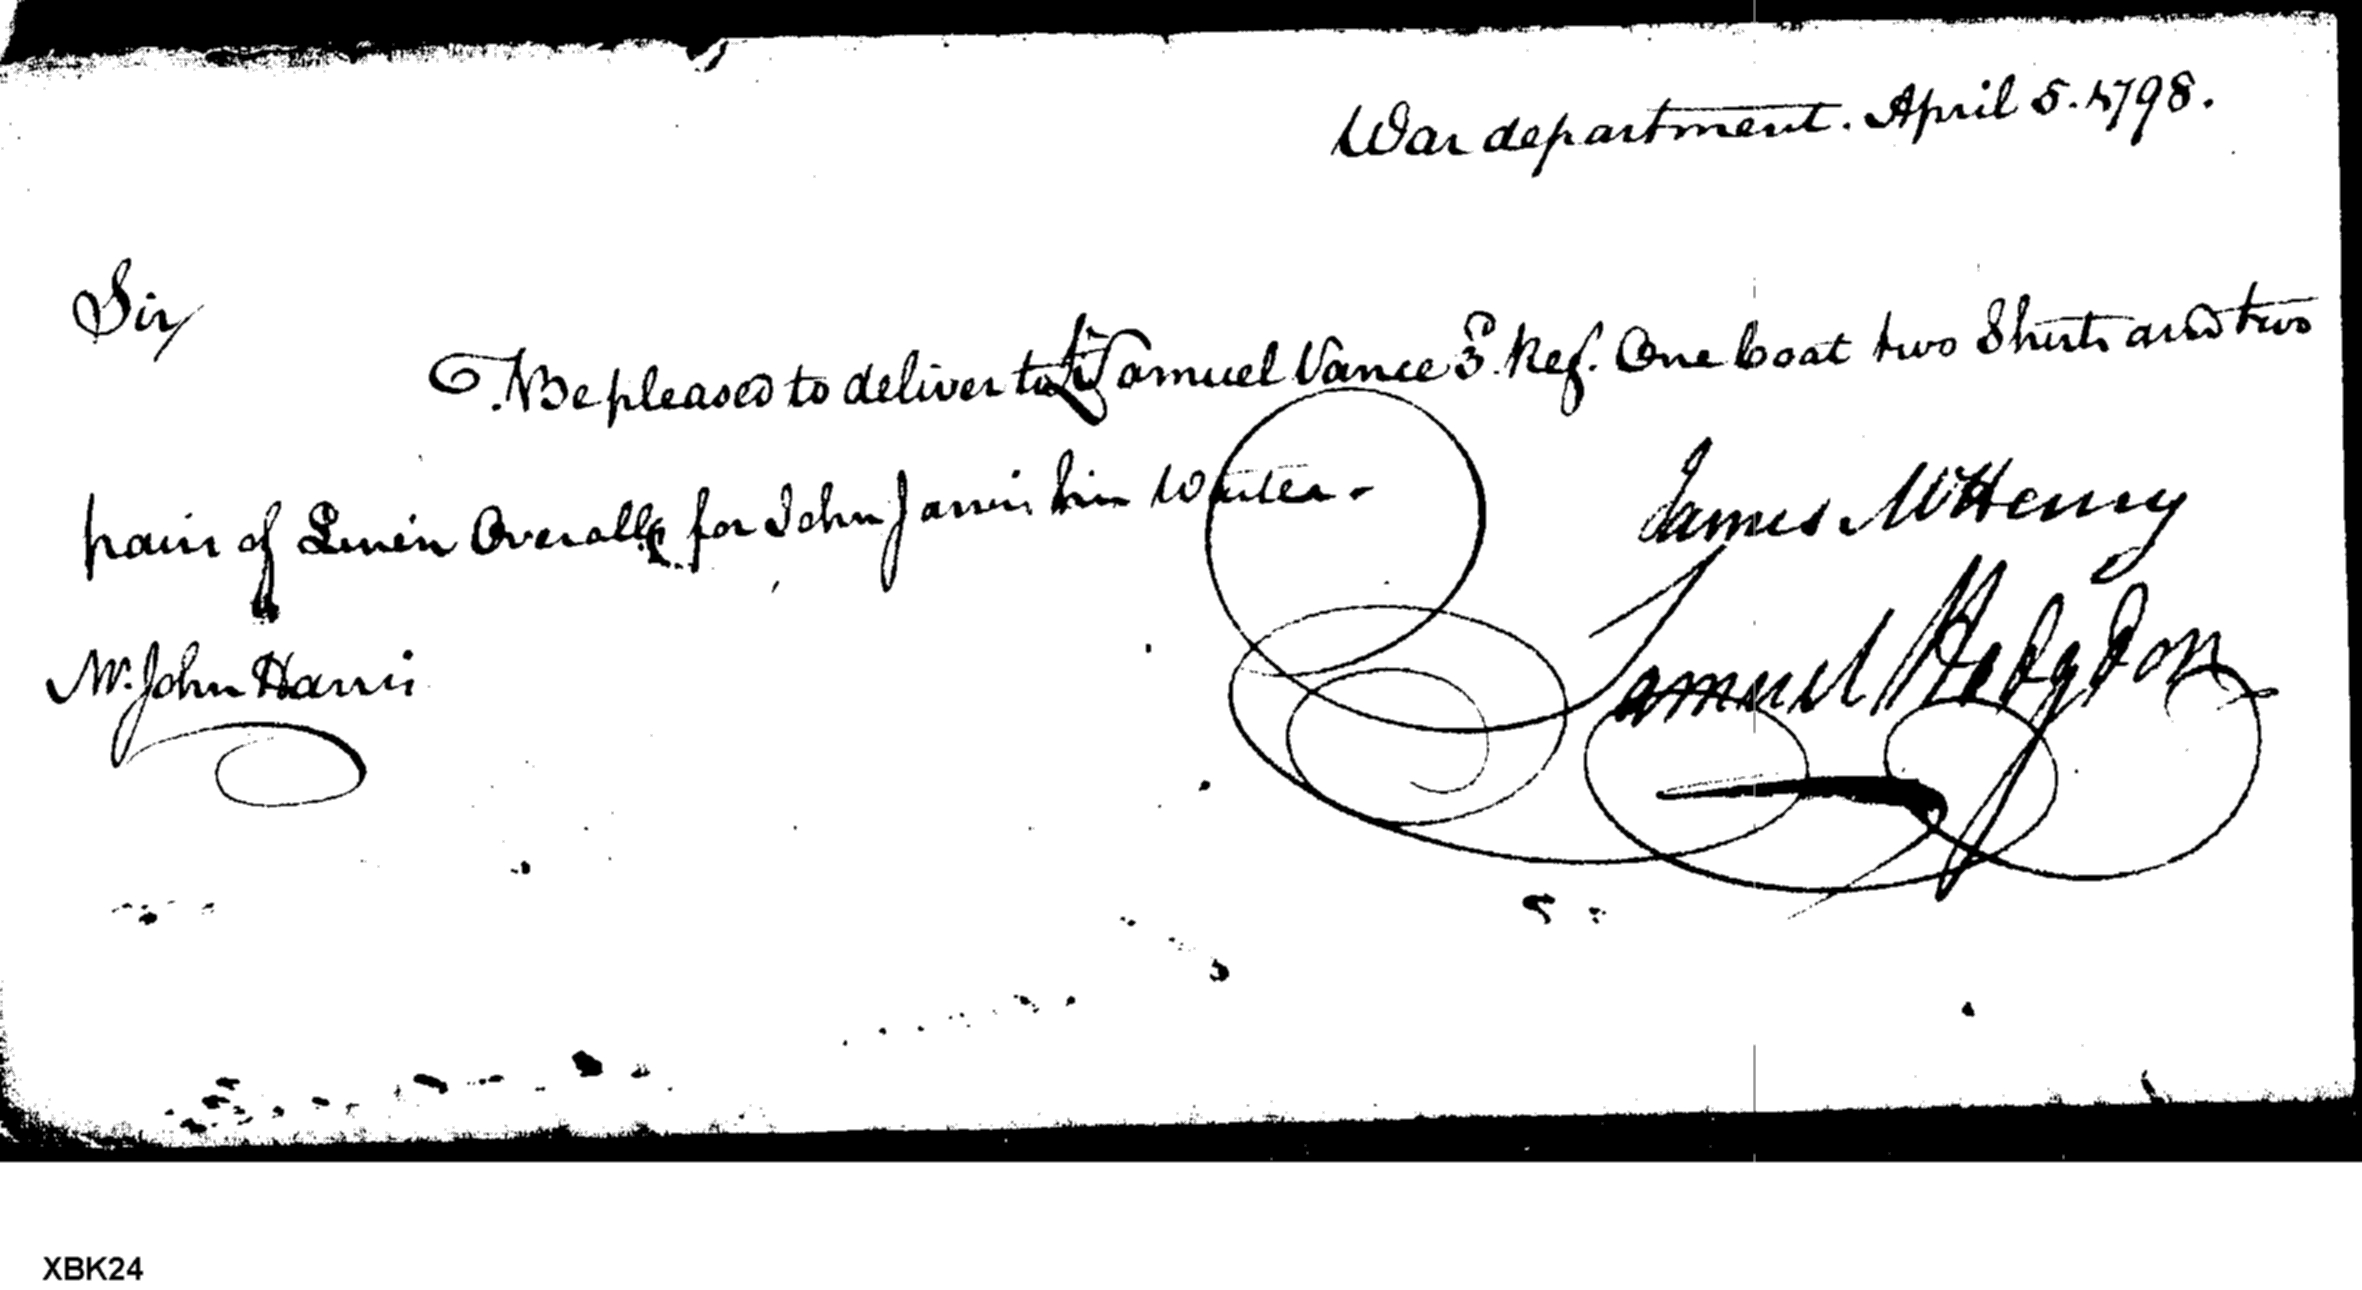 War department. April 5. 1798.
Sir
Be pleased to deliver to Lt Samuel Vance 3d. Reg. One Coat two Shirts and two
pair of Linen Overalls for John Jarvis his Waiter.
James McHenry
Samuel Hodgdon
Mr. John Harris
XBK24